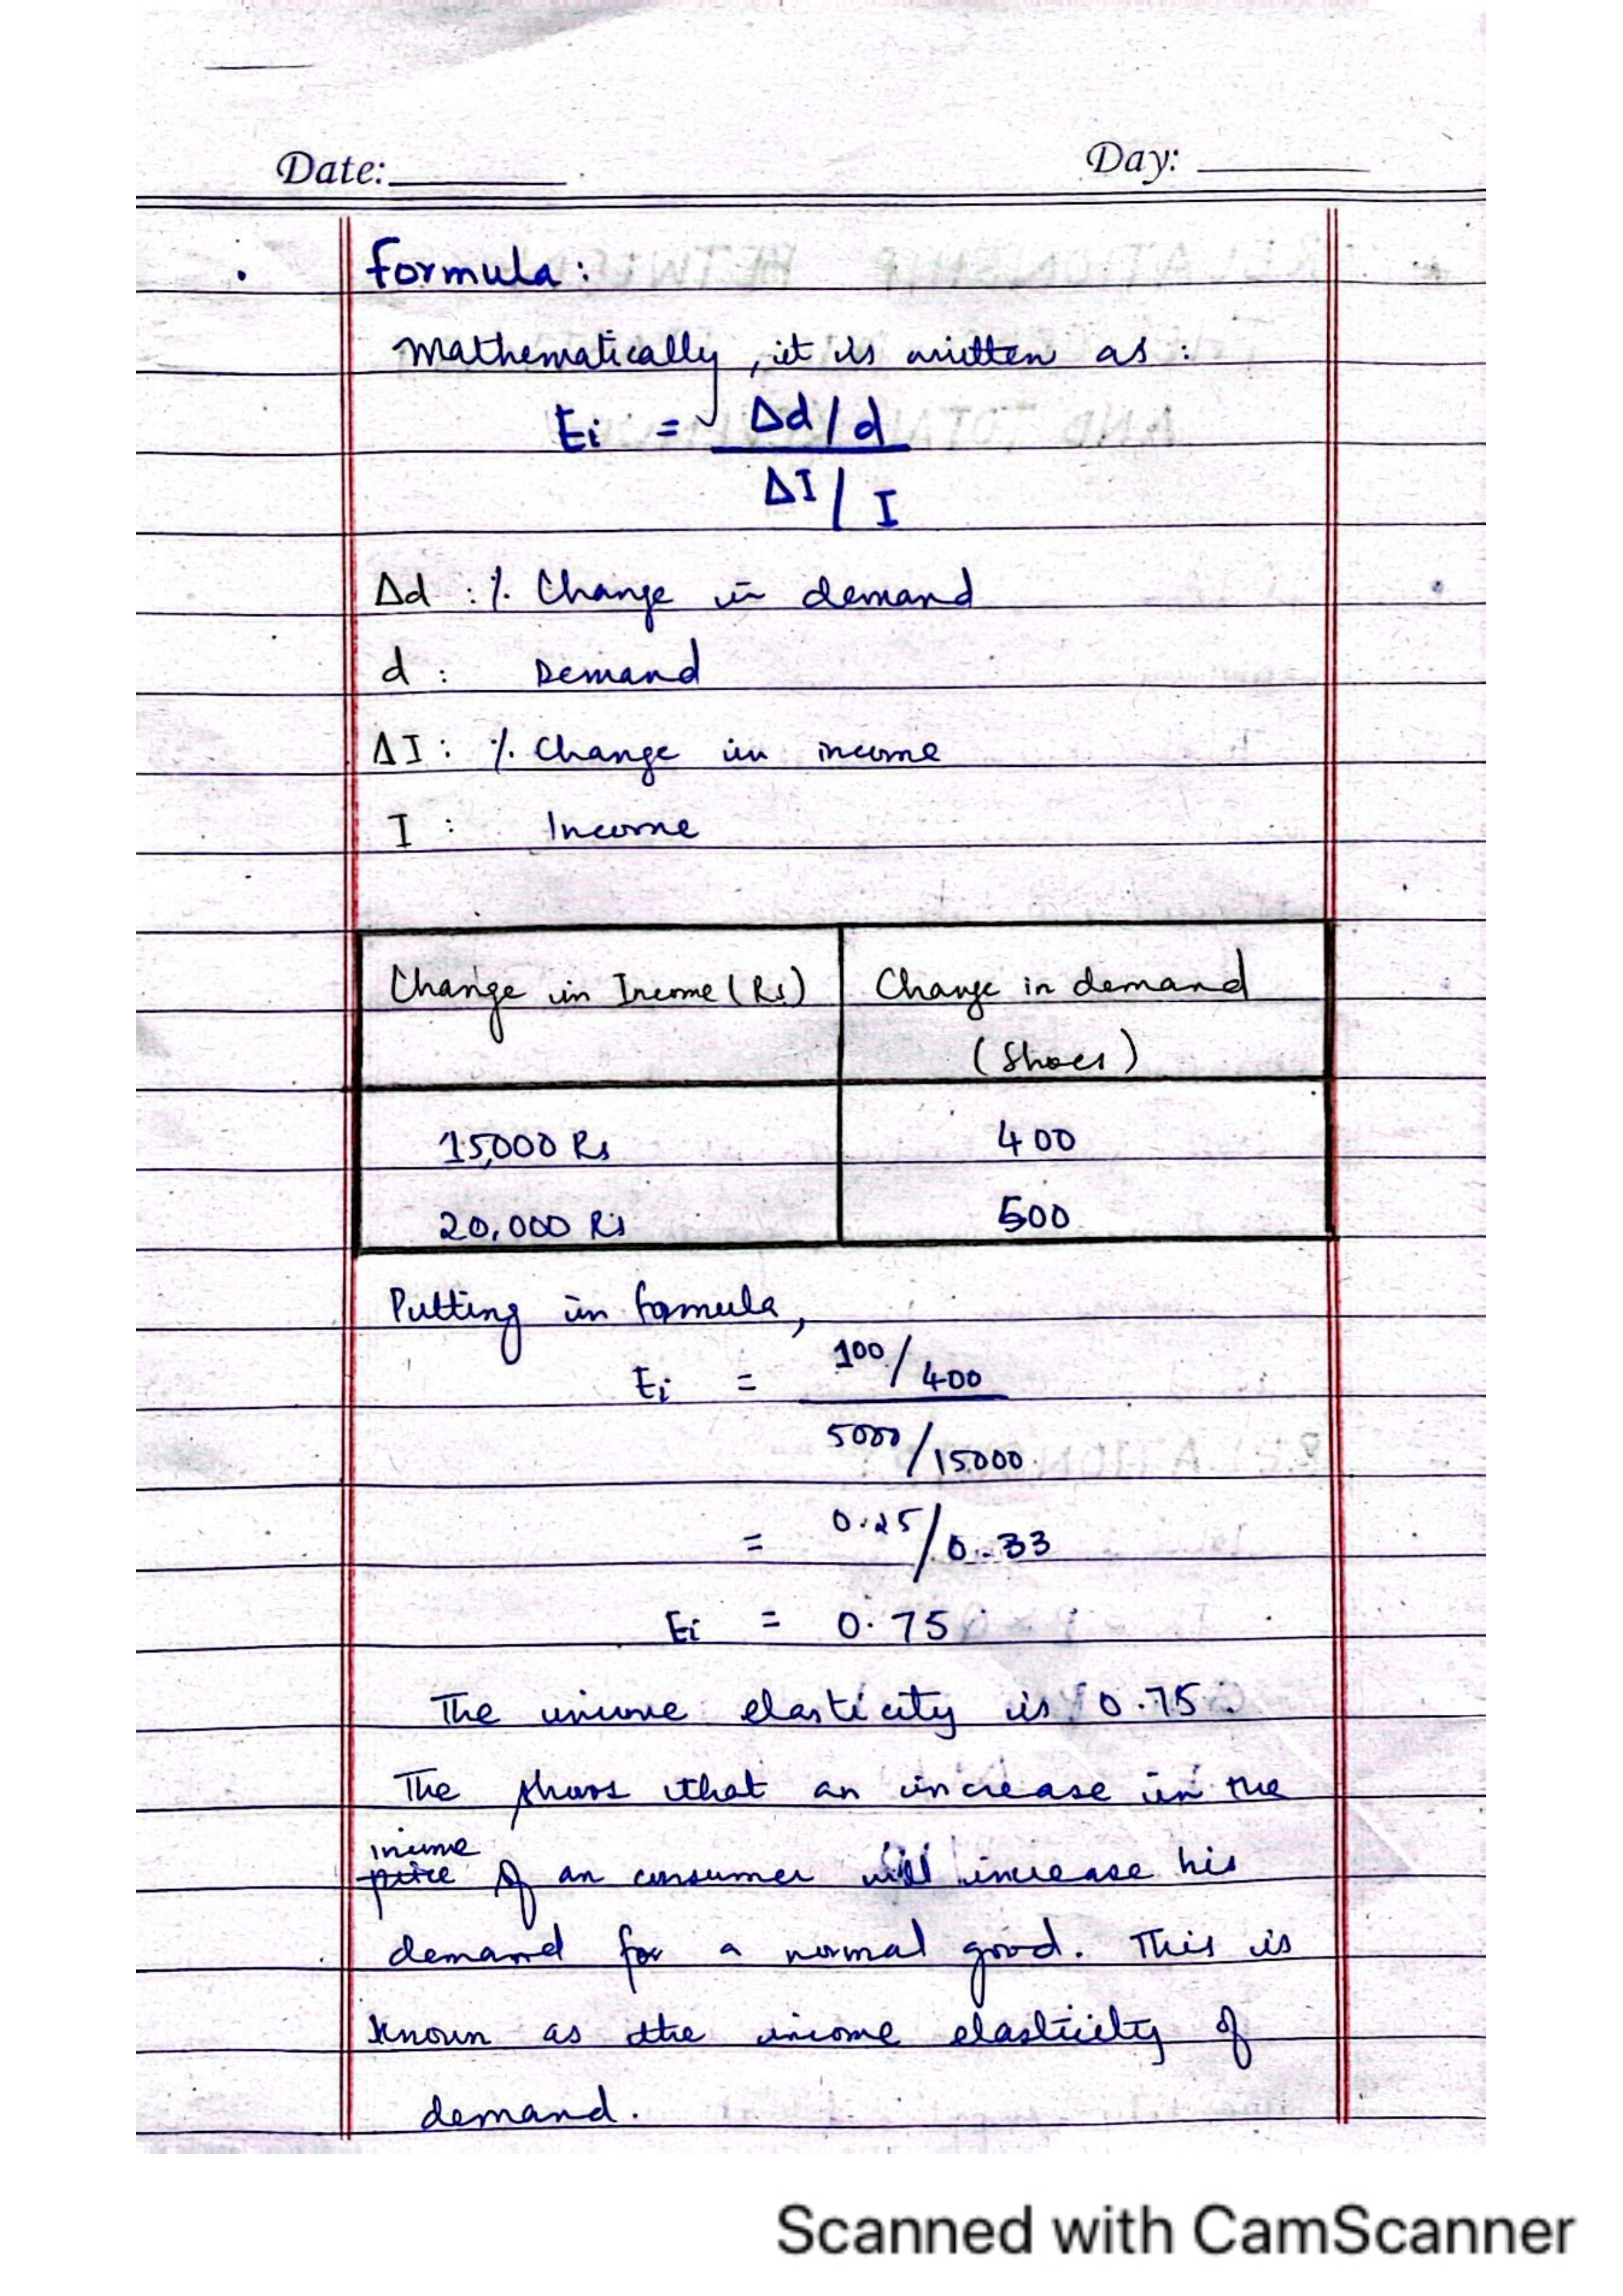 Date:
Day:
Formula:
Mathematically, it is written as:
Ei = Δd/d
ΔI/I
Δd : % Change in demand
d : Demand
ΔI : % Change in income
I : Income
Change in Income (Rs) Change in demand
(Shoes)
15,000 Rs 400
20,000 Rs 500
Putting in formula,
Ei = 100/400
5000/15000
= 0.25/0.33
Ei = 0.75
The income elasticity is 0.75.
The shows that an increase in the
income
price of an consumer will increase his
demand for a normal good. This is
known as the income elasticity of
demand.
Scanned with CamScanner